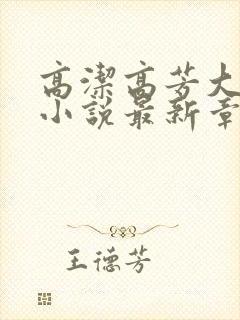 高潔高芳大
小說最新章
王德芳